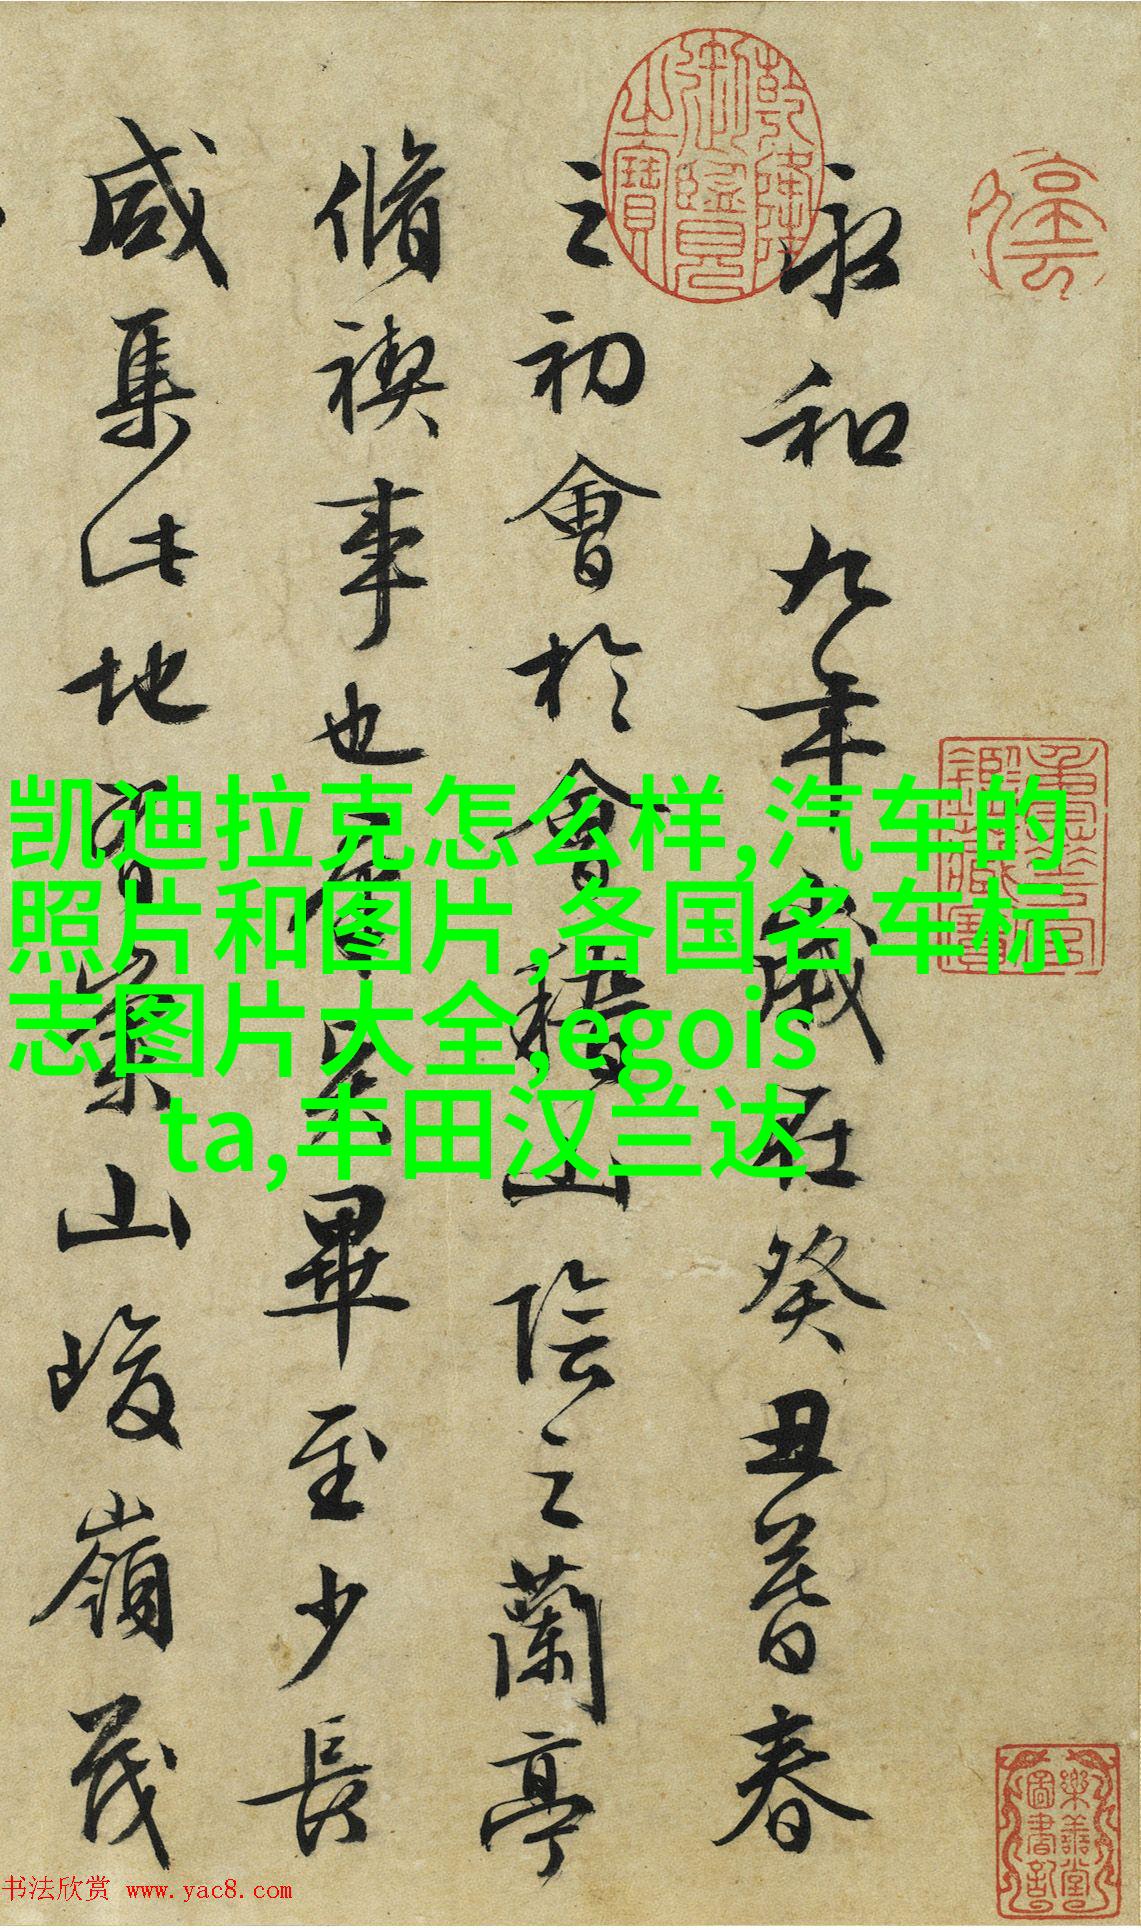 永和九年歲在癸丑暮春
之初會於會稽山陰之蘭亭
脩禊事也羣賢畢至少長
咸集此地有崇山峻嶺茂
乾隆御鑑之寶
重華宮鑑藏寶
樂善堂圖書記
凯迪拉克怎么样,汽车的
照片和图片,各国名车标
志图片大全,egois
ta,丰田汉兰达
书法欣赏 www.yac8.com